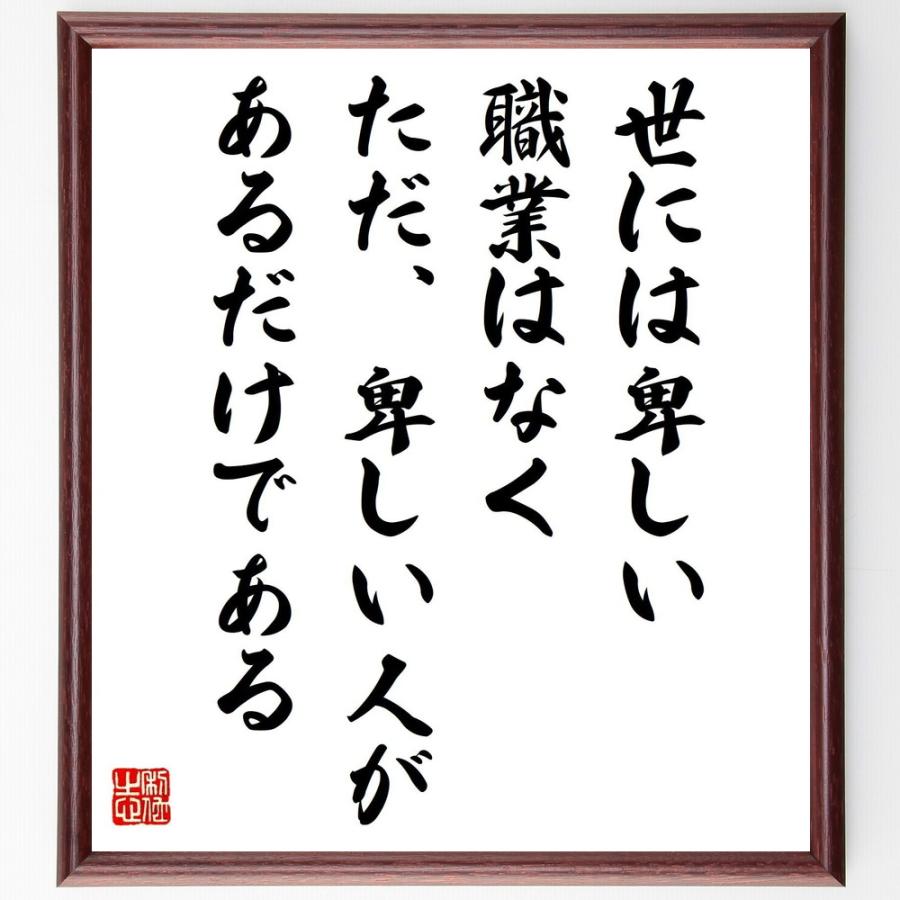 世には卑しい
職業はなく
ただ、卑しい人が
あるだけである